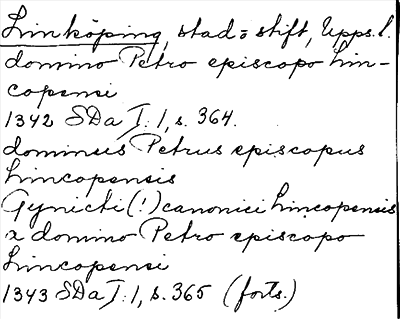 Linköping, stad o stift, Upps.l.
domino Petro episcopo Lin-
copensi
1342 SDa I:1, s. 364.
dominus Petrus episcopus
Lincopensis
Gynicti (!) canonici Lincopensis
x domino Petro episcopo
Lincopensi
1343 SDa I:1, s. 365 (forts.)